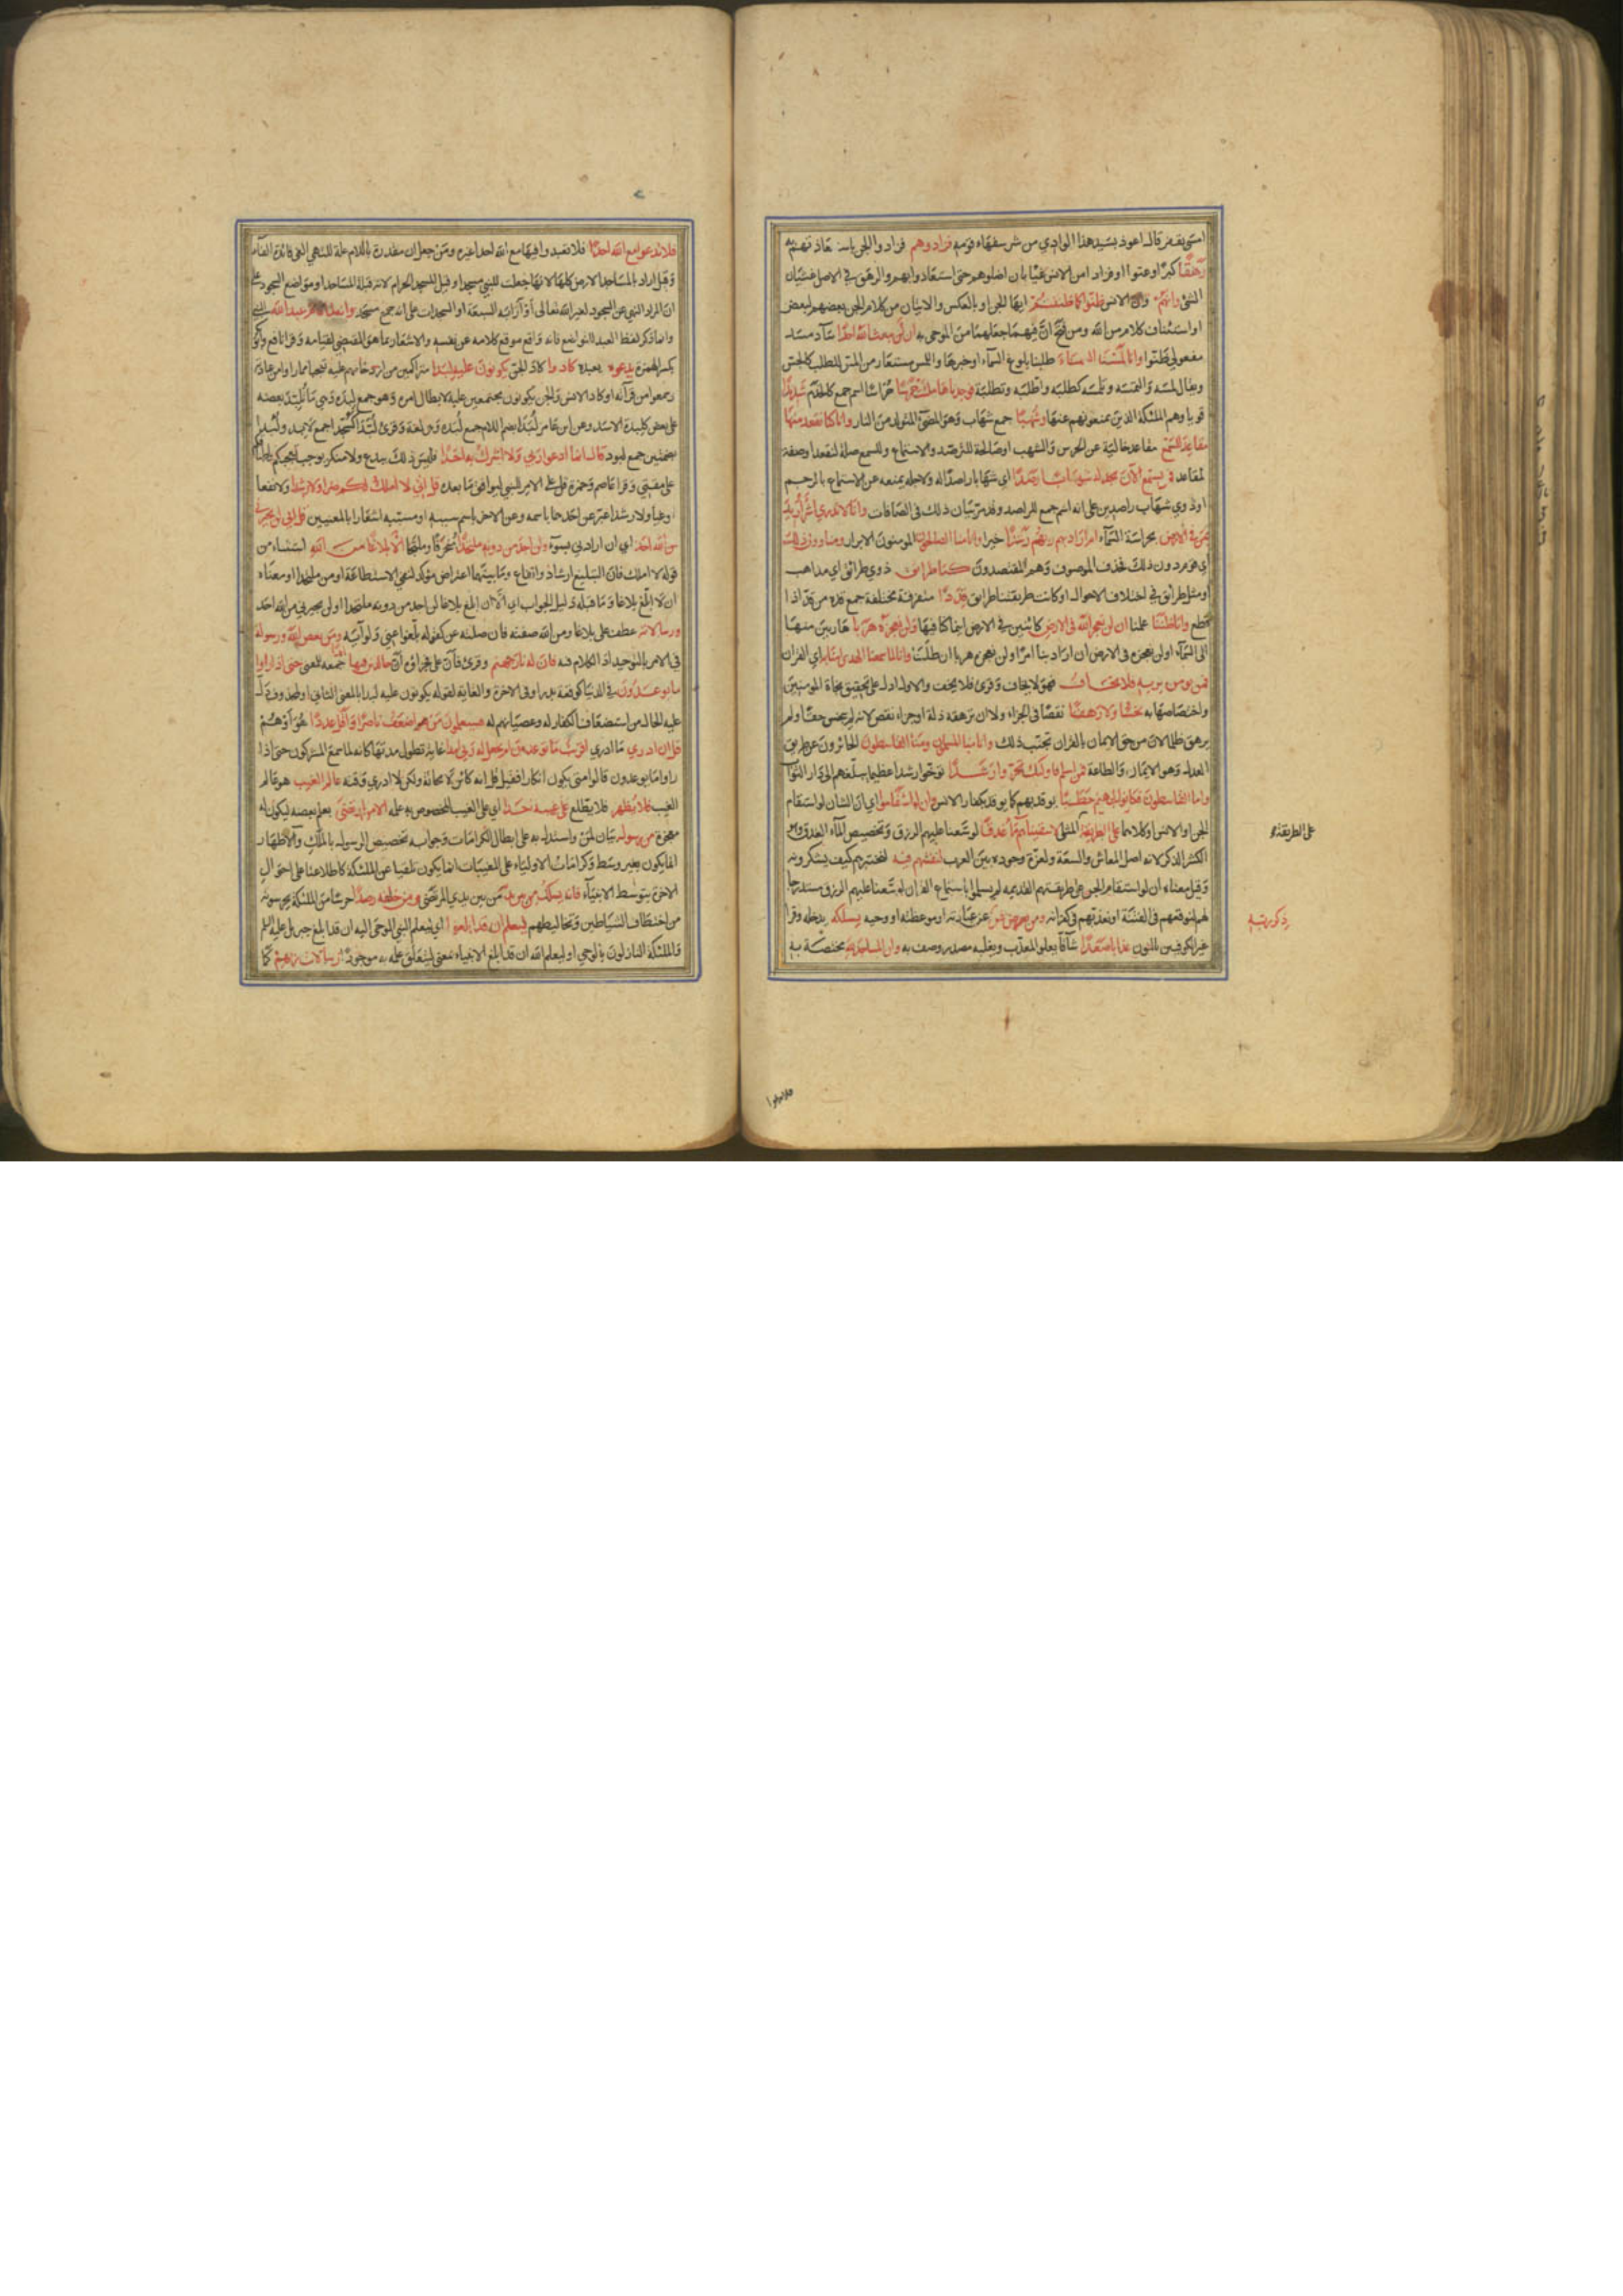 امسى بقفر قال اعوذ بسيد هذا الوادي من شر سفهاء قومه فزادوهم فزادوا الجن باستعاذتهم بهم
رهقا كبرا وعتوا او فزاد الجن الانس غيا بان اضلوهم حتى استعاذوا بهم والرهق في الاصل غشيان
الشئ وانهم وان الانس ظنوا كما ظننتم ايها الجن او بالعكس والايتان من كلام الجن بعضهم لبعض
او استئناف كلام من الله ومن فتح ان فيهما جعلهما من الموحى به ان لن يبعث الله احدا ساد مسد
مفعولي ظنوا وانا لمسنا السماء طلبنا بلوغ السماء او خبرها واللمس مستعار من المس للطلب كالجس
يقال لمسه والتمسه وتلمسه كطلبه واطلبه وتطلبه فوجدناها ملئت حرسا حراسا اسم جمع كالخدم شديدا
قويا وهم الملئكة الذين يمنعونهم عنها وشهبا جمع شهاب وهو المضئ المتولد من النار وانا كنا نقعد منها
مقاعد للسمع مقاعد خالية عن الحرس والشهب او صالحة للترصد والاستماع وللسمع صلة لنقعد او صفة
لمقاعد فمن يستمع الآن يجد له شهابا رصدا اي شهابا راصدا له ولاجله يمنعه عن الاستماع بالرجم
او ذوي شهاب راصدين على انه اسم جمع للراصد وقد مر بيان ذلك في الصافات وانا لا ندري اشر اريد
بمن في الارض بحراسة السماء ام اراد بهم ربهم رشدا خيرا وانا منا الصالحون المؤمنون الابرار ومنا دون ذلك
اي قوم دون ذلك فحذف الموصوف وهم المقتصدون كنا طرائق ذوي طرائق اي مذاهب
او مثل طرائق في اختلاف الاحوال او كانت طريقتنا طرائق قددا متفرقة مختلفة جمع قدة من قد اذا
قطع وانا ظننا علمنا ان لن نعجز الله في الارض كائنين في الارض اينما كنا فيها ولن نعجزه هربا هاربين منها
الى السماء او لن نعجزه في الارض ان اراد بنا امرا ولن نعجزه هربا ان طلبنا وانا لما سمعنا الهدى امنا به اي القران
فمن يؤمن بربه فلا يخاف فهو لا يخاف وقرئ فلا يخف والاول ادل على تحقيق نجاة المؤمنين
واختصاصها به بخسا ولا رهقا نقصا في الجزاء ولا ان ترهقه ذلة او جزاء نقص لانه لم يبخس حقا ولم
يرهق ظلما لان من حق الايمان بالقران تجنب ذلك وانا منا المسلمون ومنا القاسطون الجائرون عن طريق
العدل وهو الايمان والطاعة فمن اسلم فاولئك تحروا رشدا توخوا رشدا عظيما يبلغهم الى دار الثواب
واما القاسطون فكانوا لجهنم حطبا يوقد بهم كما يوقد بكفار الانس وان لو استقاموا اي ان الشان لو استقام
الجن او الانس او كلاهما على الطريقة المثلى لاسقيناهم ماء غدقا لوسعنا عليهم الرزق وتخصيص الماء الغدق وهو
الكثير الذكر لانه اصل المعاش والسعة ولعزة وجوده بين العرب لنفتنهم فيه لنختبرهم كيف يشكرونه
وقيل معناه ان لو استقام الجن على طريقتهم القديمة لم يسلموا باستماع القران لوسعنا عليهم الرزق مستدرجين
لهم لنوقعهم في الفتنة ونعذبهم في كفرانه ومن يعرض عن ذكر ربه عن عبادته او موعظته او وحيه يسلكه يدخله وقرا
غير الكوفيين بالنون عذابا صعدا شاقا يعلو المعذب ويغلبه مصدر وصف به وان المساجد لله مختصة به
على الطريقة
ذكر ربه
فلا تدعوا
فلا تدعوا مع الله احدا فلا تعبدوا فيها مع الله احدا غيره ومن جعل ان مقدرة باللام علة للنهي الغى فائدة الفاء
وقيل اراد بالمساجد الارض كلها لانها جعلت للنبي مسجدا وقيل المسجد الحرام لانه قبلة المساجد او مواضع السجود على
ان المراد النهي عن السجود لغير الله تعالى او آرابه السبعة او السجدات على انه جمع مسجد وانه لما قام عبد الله اي النبي
وانما ذكر لفظ العبد للتواضع فانه واقع موقع كلامه عن نفسه والاشعار بما هو المقتضي لقيامه وقرا نافع وابو بكر
بكسر الهمزة يدعوه يعبده كادوا كاد الجن يكونون عليه لبدا متراكمين من ازدحامهم عليه تعجبا مما راوا من عبادته
وسمعوا من قرآنه او كاد الانس والجن يكونون مجتمعين عليه لابطال امره وهو جمع لبدة وهي ما تلبد بعضه
على بعض كلبدة الاسد وعن ابن عامر لبدا بضم اللام جمع لبدة وهي لغة وقرئ لبدا كسجدا جمع لابد ولبدا
بضمتين جمع لبود قال انما ادعوا ربي ولا اشرك به احدا فليس ذلك ببدع ولا منكر يوجب تعجبكم او اطباقكم
على مقتي وقرا عاصم وحمزة قل على الامر للنبي ليوافق ما بعده قل اني لا املك لكم ضرا ولا رشدا ولا نفعا
او غيا ولا رشدا عبر عن احدهما باسمه وعن الاخر باسم سببه او مسببه اشعارا بالمعنيين قل اني لن يجيرني
من الله احد اي ان ارادني بسوء ولن اجد من دونه ملتحدا منحرفا وملتجا الا بلاغا من الله استثناء من
قوله لا املك فان التبليغ ارشاد وانفاع وما بينهما اعتراض مؤكد لنفي الاستطاعة او من ملتحدا او معناه
ان لا ابلغ بلاغا وما قبله دليل الجواب اي الا ان ابلغ بلاغا لن اجد من دونه ملتحدا او لن يجيرني من الله احد
ورسالاته عطف على بلاغا ومن الله صفته فان صلته عن كقوله بلغوا عني ولو آية ومن يعص الله ورسوله
في الامر بالتوحيد اذ الكلام فيه فان له نار جهنم وقرئ فان على فجزاؤه ان خالدين فيها ابدا جمعه للمعنى حتى اذا راوا
ما يوعدون في الدنيا كوقعة بدر او في الاخرة والغاية لقوله يكونون عليه لبدا بالمعنى الثاني او لمحذوف دل
عليه الحال من استضعاف الكفار له وعصيانهم له فسيعلمون من هو اضعف ناصرا واقل عددا هو او هم
قل ان ادري ما ادري اقريب ما توعدون ام يجعل له ربي امدا غاية تطول مدتها كانه لما سمع المشركون حتى اذا
راوا ما يوعدون قالوا متى يكون انكارا فقيل قل انه كائن لا محالة ولكن لا ادري وقته عالم الغيب هو عالم
الغيب فلا يظهر فلا يطلع على غيبه احدا اي على الغيب المخصوص به علمه الا من ارتضى يعلم بعضه ليكون له
معجزة من رسول بيان لمن واستدل به على ابطال الكرامات وجوابه تخصيص الرسول بالملك والاظهار
بما يكون بغير وسط وكرامات الاولياء على المغيبات انما يكون تلقيا عن الملئكة كاطلاعنا على احوال
الاخرة بتوسط الانبياء فانه يسلك من بين يديه من بين يدي المرتضى ومن خلفه رصدا حرسا من الملئكة يحرسونه
من اختطاف الشياطين وتخاليطهم ليعلم ان قد ابلغوا اي ليعلم النبي الموحى اليه ان قد ابلغ جبريل عليه السلم
والملئكة النازلون بالوحي او ليعلم الله ان قد ابلغ الانبياء بمعنى ليتعلق علمه به موجودا رسالات ربهم كما